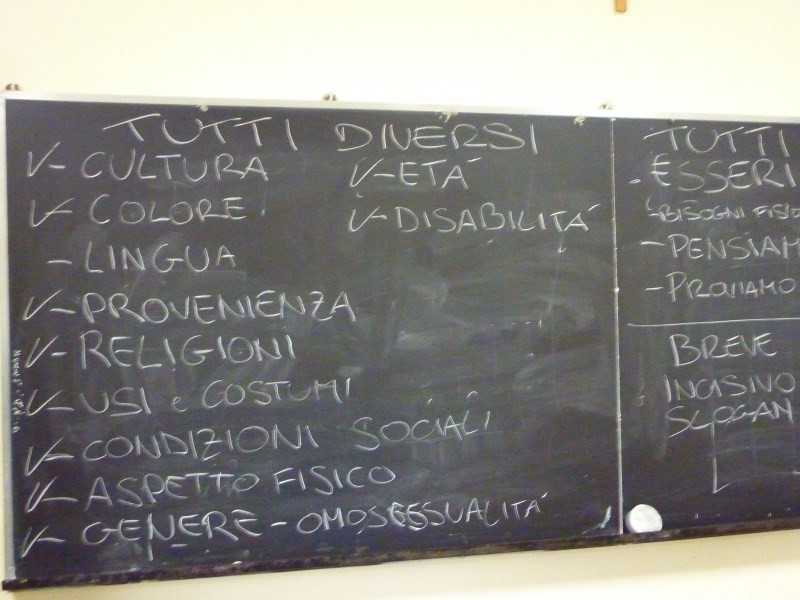 TUTTI DIVERSI
✓- CULTURA
✓- COLORE
- LINGUA
✓- PROVENIENZA
✓- RELIGIONI
✓- USI e COSTUMI
✓- CONDIZIONI SOCIALI
✓- ASPETTO FISICO
✓- GENERE - OMOSESSUALITÁ
✓- ETÁ
✓- DISABILITÁ
TUTTI
- ESSERI
- BISOGNI FISIO
- PENSIAM
- PROVIAMO
BREVE
INCISIVO
SLOGAN